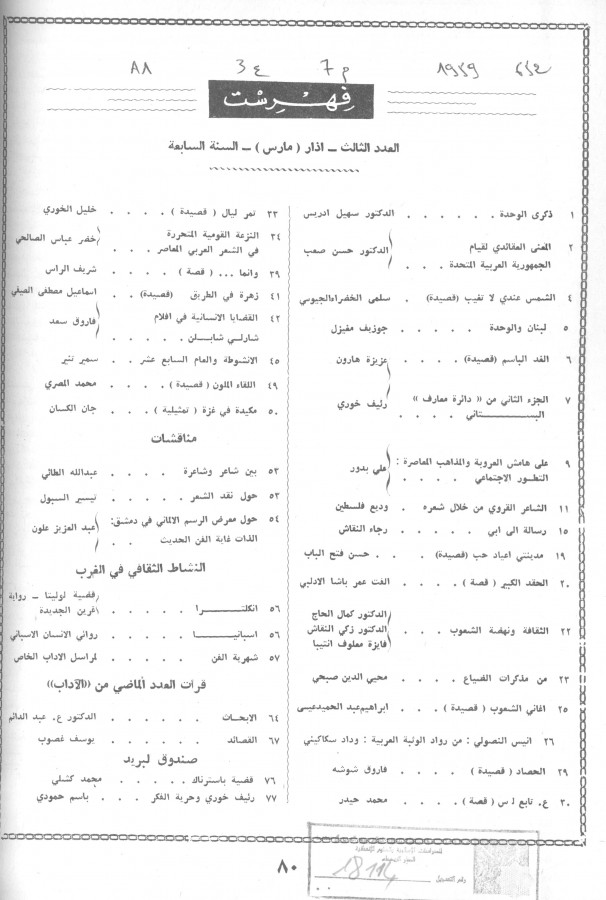 ٨٨ ع 3 م 7 1959 ٤٥٢
فهرست
العدد الثالث ــ اذار ( مارس ) ــ السنة السابعة
١ ذكرى الوحدة . . . . . الدكتور سهيل ادريس
٢ المعنى العقائدي لقيام
الجمهورية العربية المتحدة . . . الدكتور حسن صعب
٤ الشمس عندي لا تغيب (قصيدة) . سلمى الخضراء الجيوسي
٥ لبنان والوحدة . . . . . جوزيف مغيزل
٦ الغد الباسم (قصيدة) . . . . عزيزة هارون
٧ الجزء الثاني من « دائرة معارف »
البستاني . . . . رئيف خوري
٩ على هامش العروبة والمذاهب المعاصرة :
التطور الاجتماعي . . . . علي بدور
١١ الشاعر القروي من خلال شعره . وديع فلسطين
١٥ رسالة الى ابي . . . . . رجاء النقاش
١٩ مدينتي اعياد حب (قصيدة) . . حسن فتح الباب
٢٠ الحقد الكبير ( قصة ) . الفت عمر باشا الادلبي
٢٢ الثقافة ونهضة الشعوب . . . الدكتور كمال الحاج
الدكتور زكي النقاش
فايزة معلوف انتيبا
٢٣ من مذكرات الضياع . . . . محيي الدين صبحي
٢٥ اغاني الشعوب ( قصيدة ) . . ابراهيم عبد الحميد عيسى
٢٦ انيس النصولي : من رواد الوثبة العربية : وداد سكاكيني
٢٩ الحصاد ( قصيدة ) . . . . فاروق شوشه
٣٠ ع. تابع لـ س ( قصة ) . . . . محمد حيدر
٣٣ تمر ليال ( قصيدة ) . . . . خليل الخوري
٣٤ النزعة القومية المتحررة
في الشعر العربي المعاصر . . . خضر عباس الصالحي
٣٩ وانما ... ( قصة ) . . . . شريف الراس
٤١ زهرة في الطريق (قصيدة) . . اسماعيل مصطفى الصيفي
٤٢ القضايا الانسانية في افلام
شارلي شابلن . . . . . فاروق سعد
٤٥ الانشوطة والعام السابع عشر . . سمير تنير
٤٩ اللقاء الملون ( قصيدة ) . . . . محمد المصري
٥٠ مكيدة في غزة ( تمثيلية ) . . . جان الكسان
مناقشات
٥٣ بين شاعر وشاعرة . . . . عبدالله الطائي
٥٣ حول نقد الشعر . . . . . تيسير السبول
٥٤ حول معرض الرسم الالماني في دمشق:
الذات غاية الفن الحديث . . . عبد العزيز علون
النشاط الثقافي في الغرب
٥٦ انكلترا . . . . قضية لوليتا ــ رواية
غرين الجديدة
٥٦ اسبانيا . . . . روائي الانسان الاسباني
٥٧ شهرية الفن . . . . لمراسل الاداب الخاص
قرأت العدد الماضي من «الآداب»
٦٤ الابحاث . . . . . الدكتور ع. عبد الدائم
٦٧ القصائد . . . . . يوسف غصوب
صندوق لبريد
٧٦ قضية باسترناك . . . . محمد كشلي
٧٧ رئيف خوري وحرية الفكر . . . باسم حمودي
٨٠
رقم التسجيل
18114